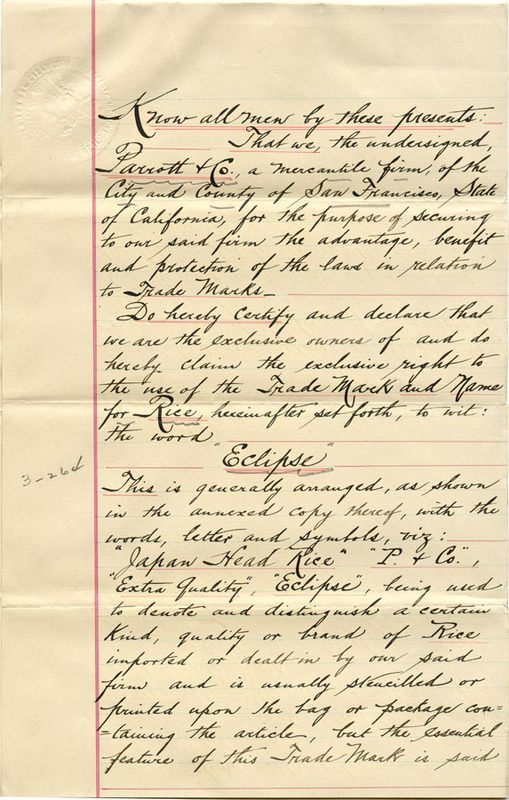 Know all men by these presents:
That we, the undersigned,
Parrott & Co., a mercantile firm, of the
City and County of San Francisco, State
of California, for the purpose of securing
to our said firm the advantage, benefit
and protection of the laws in relation
to Trade Marks—
Do hereby certify and declare that
we are the exclusive owners of and do
hereby claim the exclusive right to
the use of the Trade Mark and Name
for Rice, hereinafter set forth, to wit:
the word
"Eclipse"
3-264
This is generally arranged, as shown
in the annexed copy thereof, with the
words, letter and symbols, viz:
"Japan Head Rice" "P. & Co.",
"Extra Quality", "Eclipse", being used
to denote and distinguish a certain
kind, quality or brand of Rice
imported or dealt in by our said
firm and is usually stencilled or
printed upon the bag or package con=
=taining the article, but the essential
feature of this Trade Mark is said